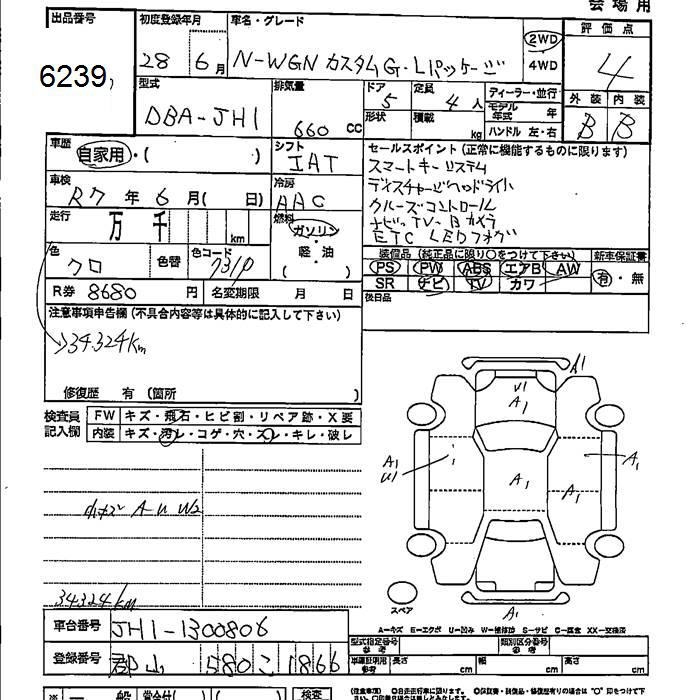 会場用
出品番号
6239
初度登録年月
28 6月
車名・グレード
N-WGN カスタムG・Lパッケージ
2WD
4WD
評価点
4
外装 内装
B B
型式
DBA-JH1
排気量
660 cc
ドア
5
定員
4 人
形状
積載
kg
ディーラー・並行
モデル年式 年
ハンドル 左・右
車歴
自家用・( )
シフト
IAT
車検
R7 年 6 月( 日)
冷房
AAC
走行
万 千 km
燃料
ガソリン・軽・油
色
クロ
色替
色コード
731P
R券 8680 円
名変期限 月 日
セールスポイント (正常に機能するものに限ります)
スマートキーシステム
ディスチャージヘッドライト
クルーズコントロール
ナビ・TV・Bカメラ
ETC LEDフォグ
装備品 (純正品に限り○をつけて下さい)
新車保証書
PS PW ABS エアB AW
SR ナビ TV カワ
有・無
後日品
注意事項申告欄 (不具合内容等は具体的に記入して下さい)
→34324km
修復歴 有 (箇所 )
検査員記入欄
FW キズ・飛石・ヒビ割・リペア跡・X要
内装 キズ・汚レ・コゲ・穴・スレ・キレ・破レ
A-U W2
34324km
A1
U1
A1
A1
U1
A1
A1
A1
A1
スペア
A-キズ E-エクボ U-凹み W-補修跡 S-サビ C-腐食 XX-交換済
車台番号 JH1-1300806
登録番号 郡山 580 こ 1866
型式指定番号 参考
類別区分番号 参考
車庫証明用 参考
長さ cm
幅 cm
高さ cm